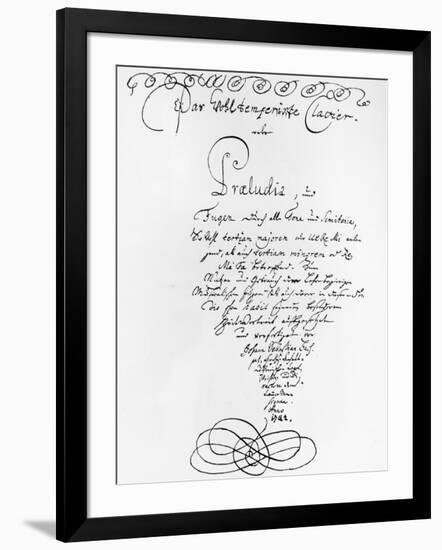 Das Wohltemperirte Clavier.
oder
Præludia, und
Fugen durch alle Tone und Semitonia,
So wohl tertiam majorem oder Ut Re Mi anlan-
gend, als auch tertiam minorem oder Re
Mi Fa betreffend. Zum
Nutzen und Gebrauch der Lehr-begierigen
Musicalischen Jugend, als auch derer in diesem stu-
dio schon habil seyenden besonderem
Zeitvertreib auffgesetzet
und verfertiget von
Johann Sebastian Bach.
p. t.
Anno
1722.